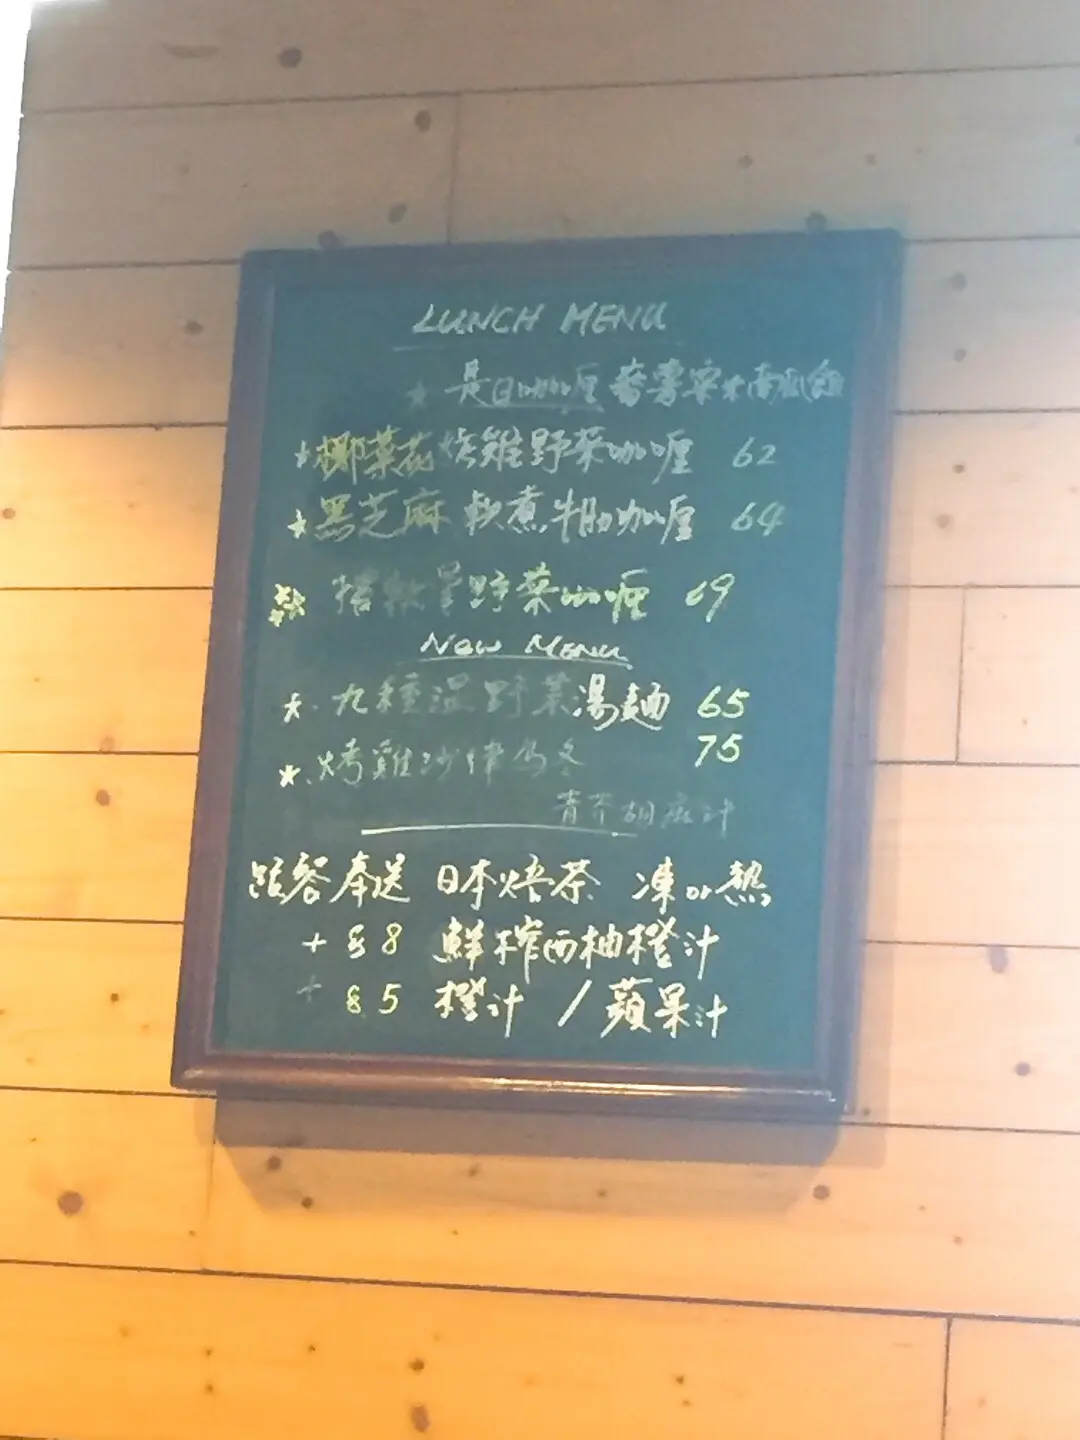 LUNCH MENU
★ 是日咖喱 南瓜飯
★ 椰菜花烤雞野菜咖喱 62
★ 黑芝麻 軟煮牛肋咖喱 64
野菜咖喱 69
NEW MENU
★ 九種溫野菜湯麵 65
★ 烤雞沙律烏冬 75
青芥胡麻汁
跟餐奉送 日本焙茶 凍or熱
+ $8 鮮榨西柚橙汁
+ $5 橙汁 / 蘋果汁